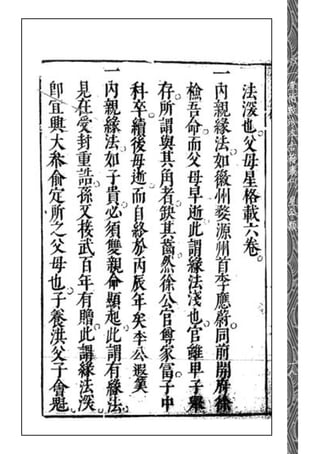 法深也父母星格載六卷
一內親緣法如徽州婺源州首李應蔚同前開府徐
檢吾命而父母早逝此謂緣法淺也官雖甲子舉
存所謂與其角者缺其齒然徐公官尊家富子中
科卒續後母逝而自終於丙辰年矣李公遐筭
一內親緣法如子貴必須雙親命顯起此謂有緣法
見在受封重誥孫又接武百年有贈此謂緣法深
即宜興大叅俞定所之父母也子養洪父子會魁